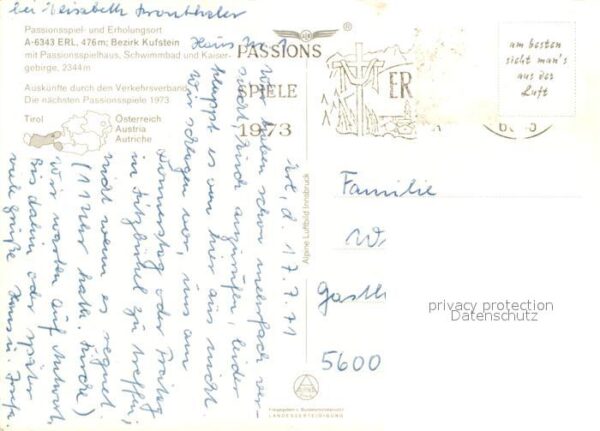 bei Elisabeth Kronthaler
Passionsspiel- und Erholungsort
A-6343 ERL, 476 m; Bezirk Kufstein
mit Passionsspielhaus, Schwimmbad und Kaiser-
gebirge, 2344 m
Auskünfte durch den Verkehrsverband
Die nächsten Passionsspiele 1973
Tirol
Österreich
Austria
Autriche
Haus Nr.
PASSIONS
SPIELE
1973
ER
am besten
sicht man's
aus der
Luft
Erl, d. 17.7.71
Wir haben schon mehrfach ver-
sucht, Euch anzurufen, leider
klappt es von hier aus nicht.
Wir schlagen vor, uns am
Donnerstag oder Freitag
in Kitzbühel zu treffen,
nicht wenn es regnet.
(11 Uhr kath. Kirche)
Wir warten auf Antwort.
Bis dahin oder später
viele Grüße Hans u.
Alpine Luftbild Innsbruck
Familie
W.
Gasth
5600
privacy protection
Datenschutz
Freigegeben v. Bundesministerium f.
LANDESVERTEIDIGUNG